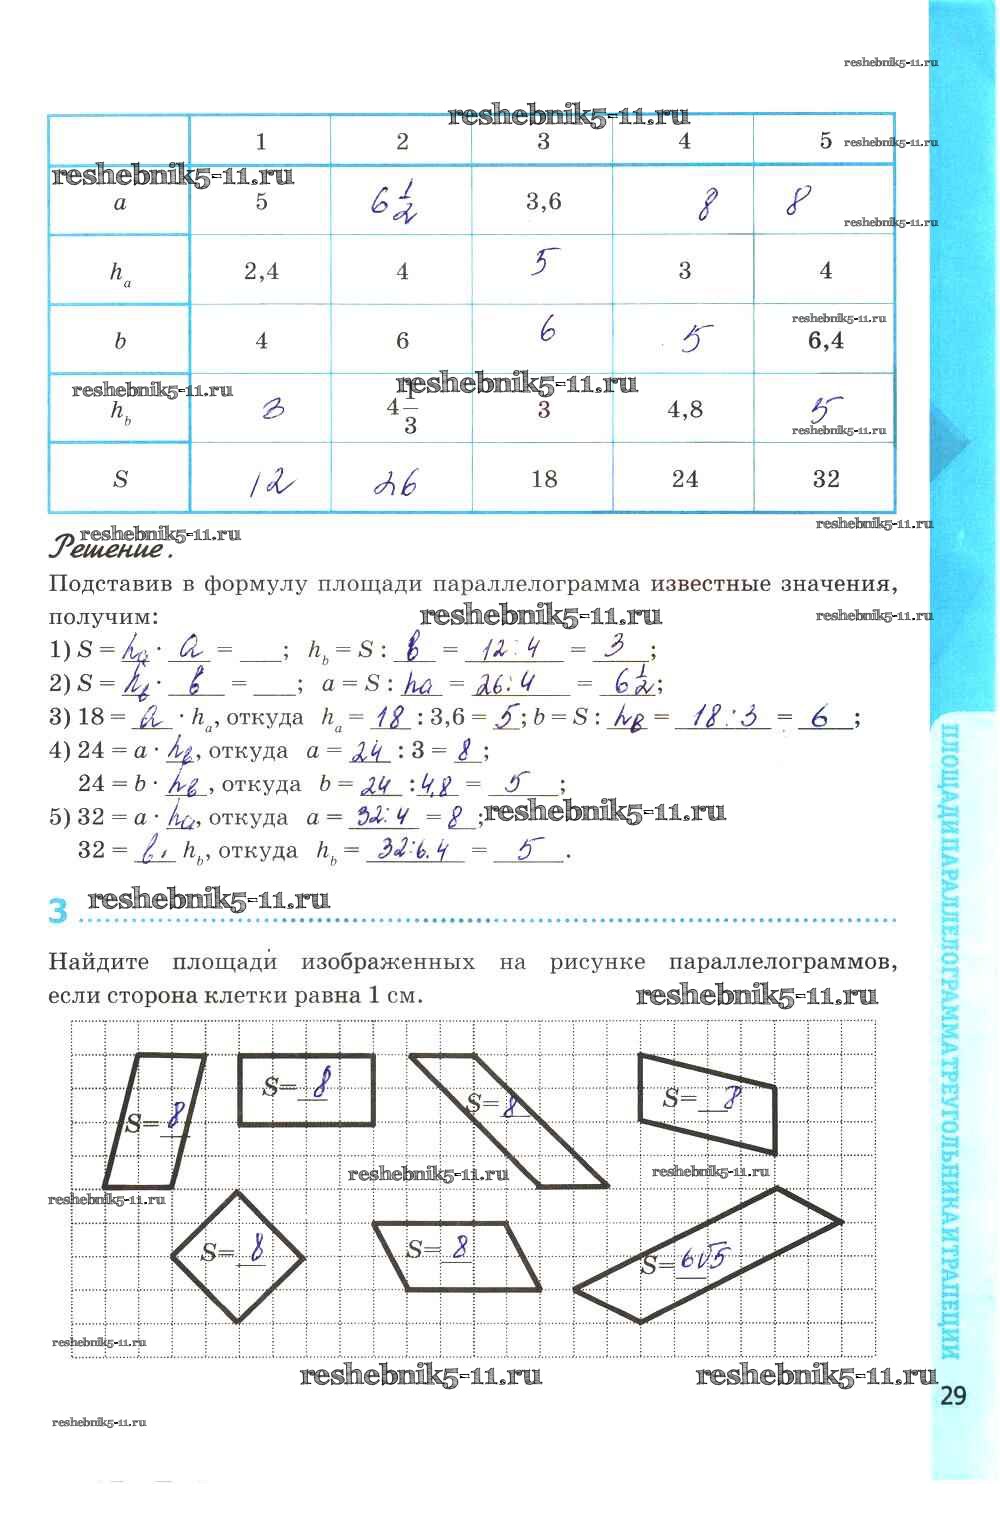 reshebnik5-11.ru
reshebnik5-11.ru
1 2 3 4 5 reshebnik5-11.ru
reshebnik5-11.ru
a 5 6 1/2 3,6 8 8
reshebnik5-11.ru
h_a 2,4 4 5 3 4
reshebnik5-11.ru
b 4 6 6 5 6,4
reshebnik5-11.ru reshebnik5-11.ru
h_b 3 4 1/3 3 4,8 5
reshebnik5-11.ru
S 12 26 18 24 32
reshebnik5-11.ru
reshebnik5-11.ru
Решение.
Подставив в формулу площади параллелограмма известные значения,
получим: reshebnik5-11.ru reshebnik5-11.ru
1) S = h_a · a = ___; h_b = S : b = 12:4 = 3;
2) S = h_b · b = ___; a = S : ha = 26:4 = 6 1/2;
3) 18 = a · h_a, откуда h_a = 18 : 3,6 = 5; b = S : h_b = 18:3 = 6;
4) 24 = a · h_b, откуда a = 24 : 3 = 8;
24 = b · h_b, откуда b = 24 : 4,8 = 5;
5) 32 = a · h_a, откуда a = 32:4 = 8; reshebnik5-11.ru
32 = b · h_b, откуда h_b = 32:6.4 = 5.
3 reshebnik5-11.ru
Найдите площади изображенных на рисунке параллелограммов,
если сторона клетки равна 1 см. reshebnik5-11.ru
S= 8
S= 8
S= 8
S= 8
reshebnik5-11.ru reshebnik5-11.ru
reshebnik5-11.ru
S= 8
S= 8
S= 6√5
reshebnik5-11.ru
reshebnik5-11.ru reshebnik5-11.ru
reshebnik5-11.ru
ПЛОЩАДИ ПАРАЛЛЕЛОГРАММА ТРЕУГОЛЬНИКА И ТРАПЕЦИИ
29